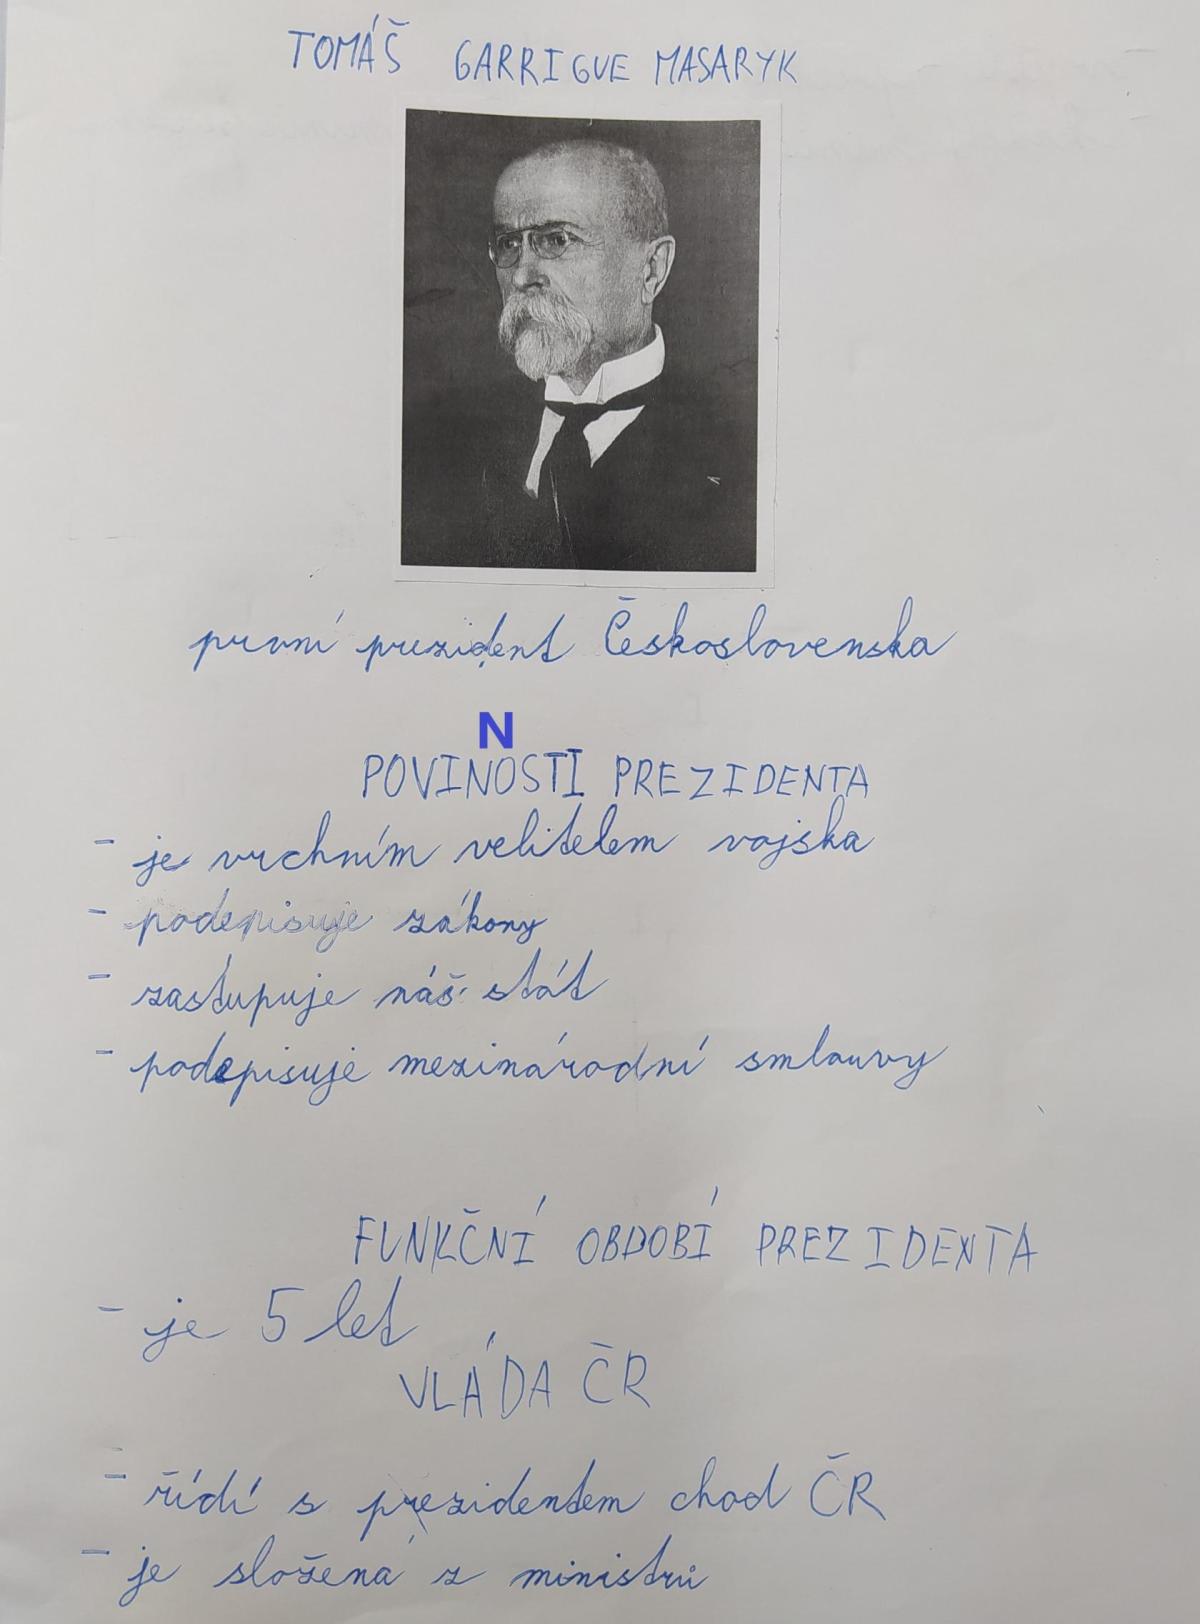 TOMÁŠ GARRIGUE MASARYK
první prezident Československa
N
POVINOSTI PREZIDENTA
- je vrchním velitelem vojska
- podepisuje zákony
- zastupuje náš stát
- podepisuje mezinárodní smlouvy
FUNKČNÍ OBDOBÍ PREZIDENTA
- je 5 let
VLÁDA ČR
- řídí s prezidentem chod ČR
- je složená z ministrů